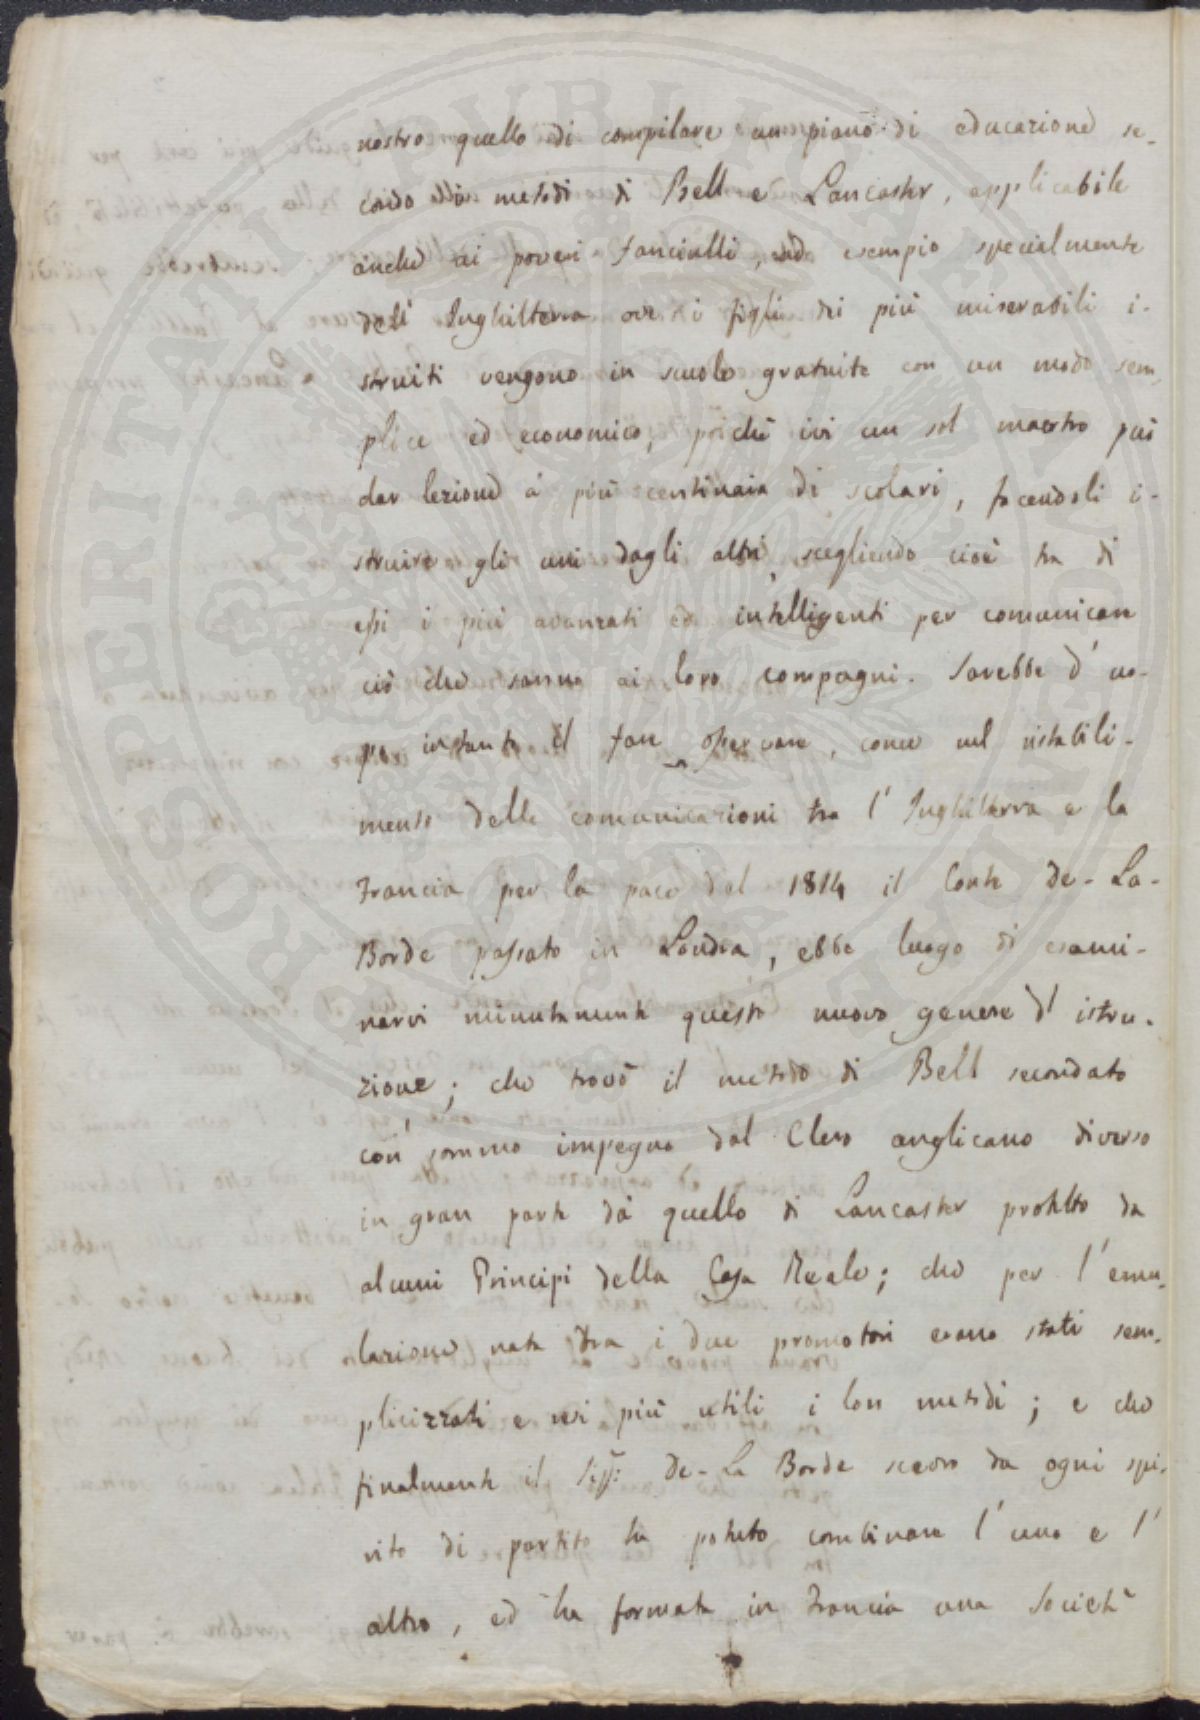 nostro quello di compilare un piano di educazione se-
condo i metodi di Bell e Lancaster, applicabile
anche ai poveri fanciulli, ad esempio specialmente
dell' Inghilterra ove i figli dei più miserabili i-
struiti vengono in scuole gratuite con un modo sem-
plice ed economico, poichè ivi un sol maestro può
dar lezione à più centinaia di scolari, facendoli i-
struire gli uni dagli altri, scegliendo cioè tra di
essi i più avanzati ed intelligenti per comunicare
ciò che sanno ai loro compagni. Sarebbe d' uo-
po intanto il fare osservare, come nel ristabili-
mento delle comunicazioni tra l' Inghilterra e la
Francia per la pace del 1814 il Conte de-La-
Borde passato in Londra, ebbe luogo di esami-
narvi minutamente questo nuovo genere d' istru-
zione; che trovò il metodo di Bell secondato
con sommo impegno dal Clero anglicano diverso
in gran parte dà quello di Lancaster protetto da
alcuni Principi della Casa Reale; che per l' emu-
lazione nata tra i due promotori erano stati sem-
plicizzati e resi più utili i loro metodi; e che
finalmente il de-La Borde scevro da ogni spi-
rito di partito ha potuto combinare l' uno e l'
altro, ed ha formata in Francia una Società
PROSPERITATI PVBLICAE